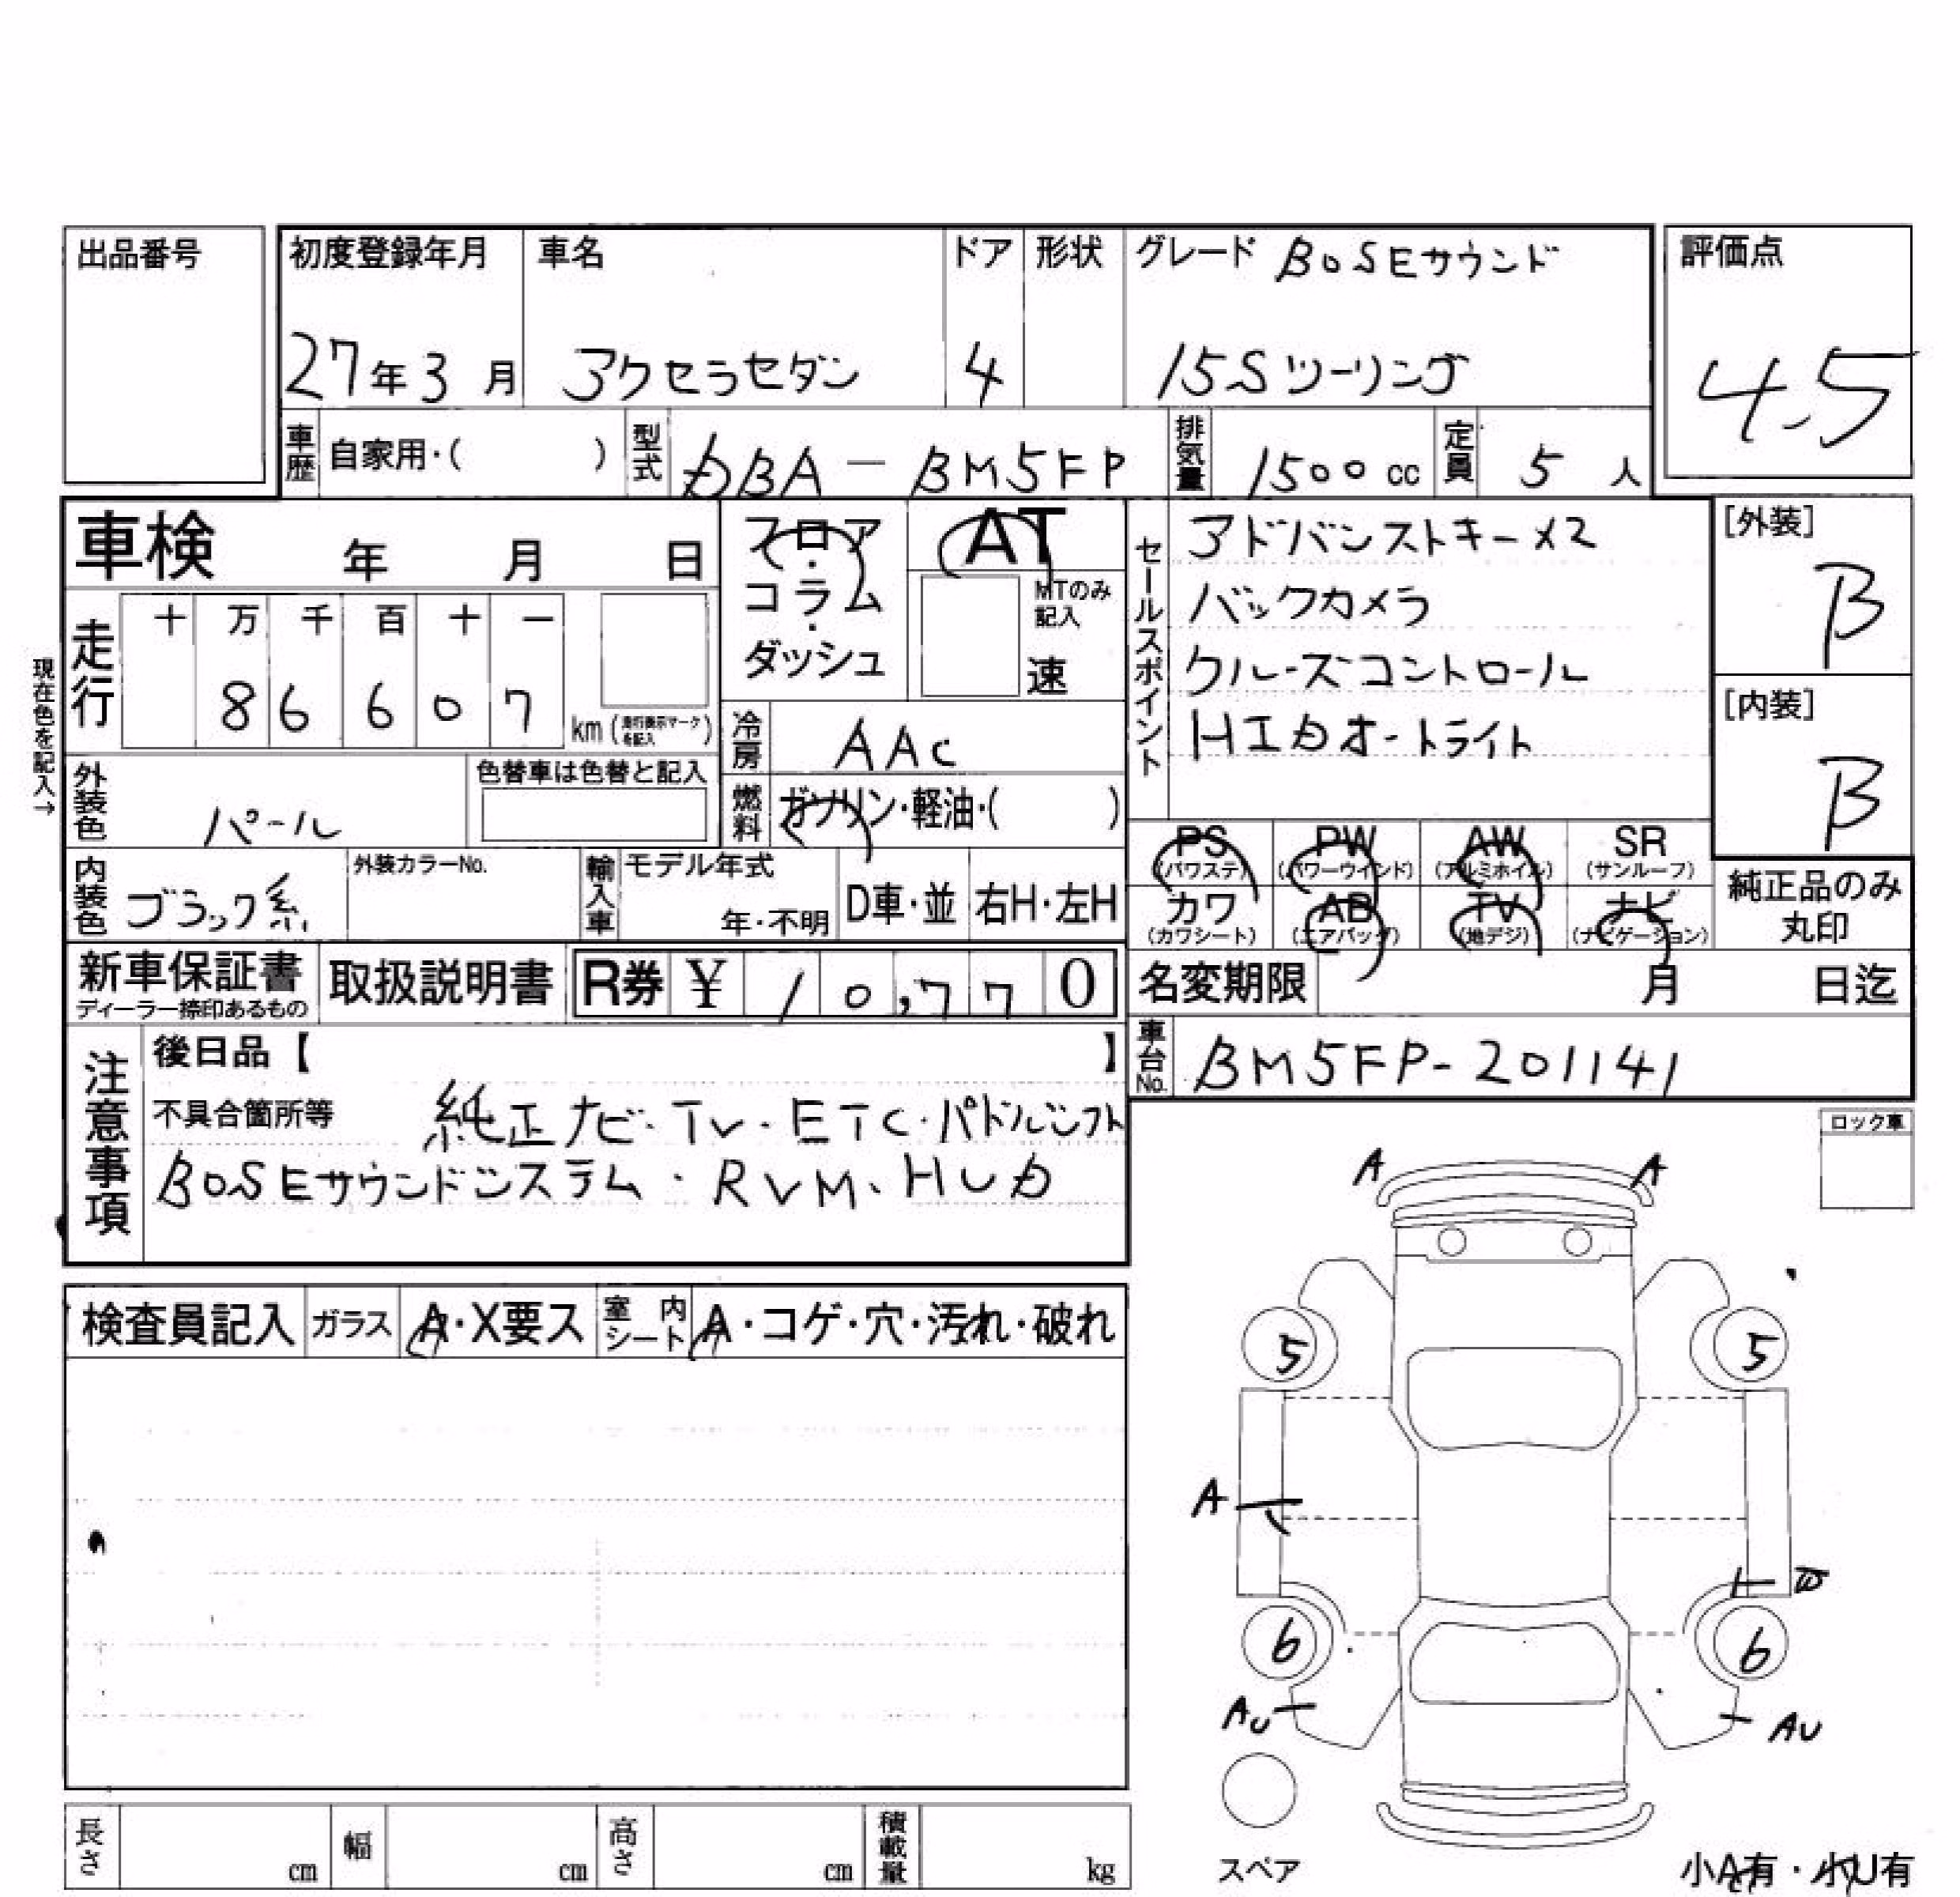 出品番号
初度登録年月
27年3月
車名
アクセラセダン
ドア
4
形状
グレード BOSEサウンド
15Sツーリング
評価点
4.5
車歴 自家用・( )
型式 DBA-BM5FP
排気量 1500cc
定員 5人
車検 年 月 日
フロア・コラム・ダッシュ
AT
MTのみ記入
速
セールスポイント
アドバンストキー×2
バックカメラ
クルーズコントロール
HIDオートライト
[外装]
B
[内装]
B
現在色を記入→
走行 十 万 千 百 十 一
8 6 6 0 7 km(走行表示マークを記入)
冷房 AAC
燃料 ガソリン・軽油・( )
外装色 パール
色替車は色替と記入
内装色 ブラック系
外装カラーNo.
輸入車 モデル年式 年・不明 D車・並 右H・左H
PS(パワステ) PW(パワーウインド) AW(アルミホイル) SR(サンルーフ)
カワ(カワシート) AB(エアバッグ) TV(地デジ) ナビ(ナビゲーション)
純正品のみ丸印
新車保証書
ディーラー捺印あるもの
取扱説明書
R券 ¥ 10,770
名変期限 月 日迄
車台No. BM5FP-201141
注意事項
後日品【 】
不具合箇所等 純正ナビ・TV・ETC・パドルシフト
BOSEサウンドシステム・RVM、HUD
ロック車
検査員記入 ガラス A・X要ス 室内シート A・コゲ・穴・汚れ・破れ
A A
5 5
A
6 6
AU AU
スペア
小A有・小U有
長さ cm 幅 cm 高さ cm 積載量 kg